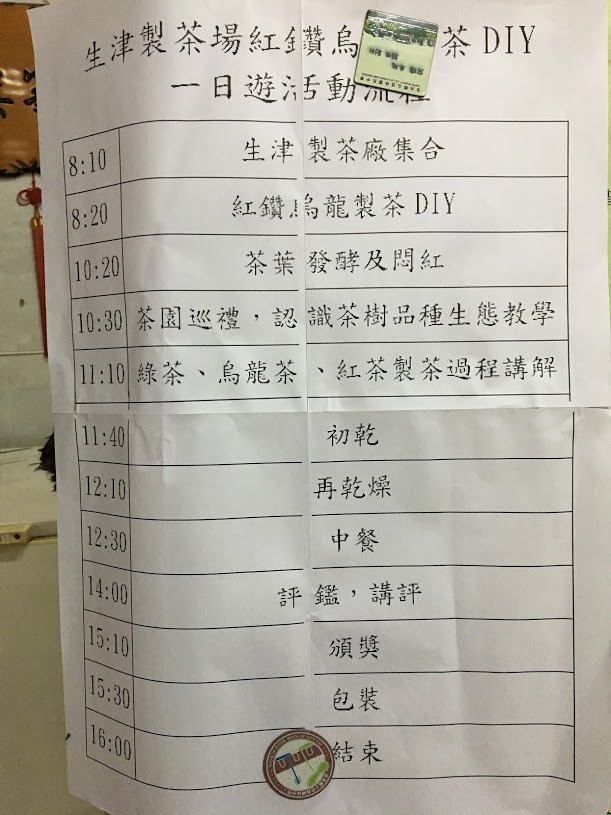 生津製茶場紅鑽烏 茶DIY
一日遊活動流程
8:10 生津製茶廠集合
8:20 紅鑽烏龍製茶DIY
10:20 茶葉發酵及悶紅
10:30 茶園巡禮，認識茶樹品種生態教學
11:10 綠茶、烏龍茶、紅茶製茶過程講解
11:40 初乾
12:10 再乾燥
12:30 中餐
14:00 評鑑，講評
15:10 頒獎
15:30 包裝
16:00 結束